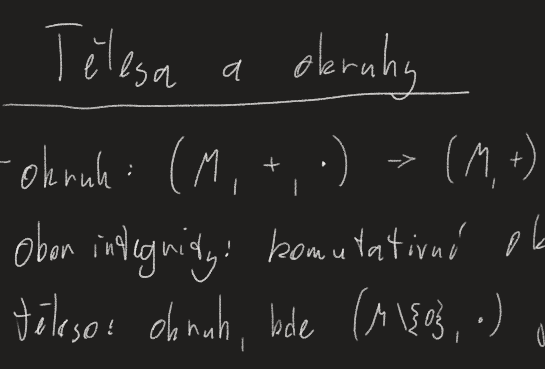 Tělesa a okruhy
- okruh: (M, +, ·) → (M, +)
Obor integrity: komutativní ok
těleso: okruh, kde (M\{0}, ·)